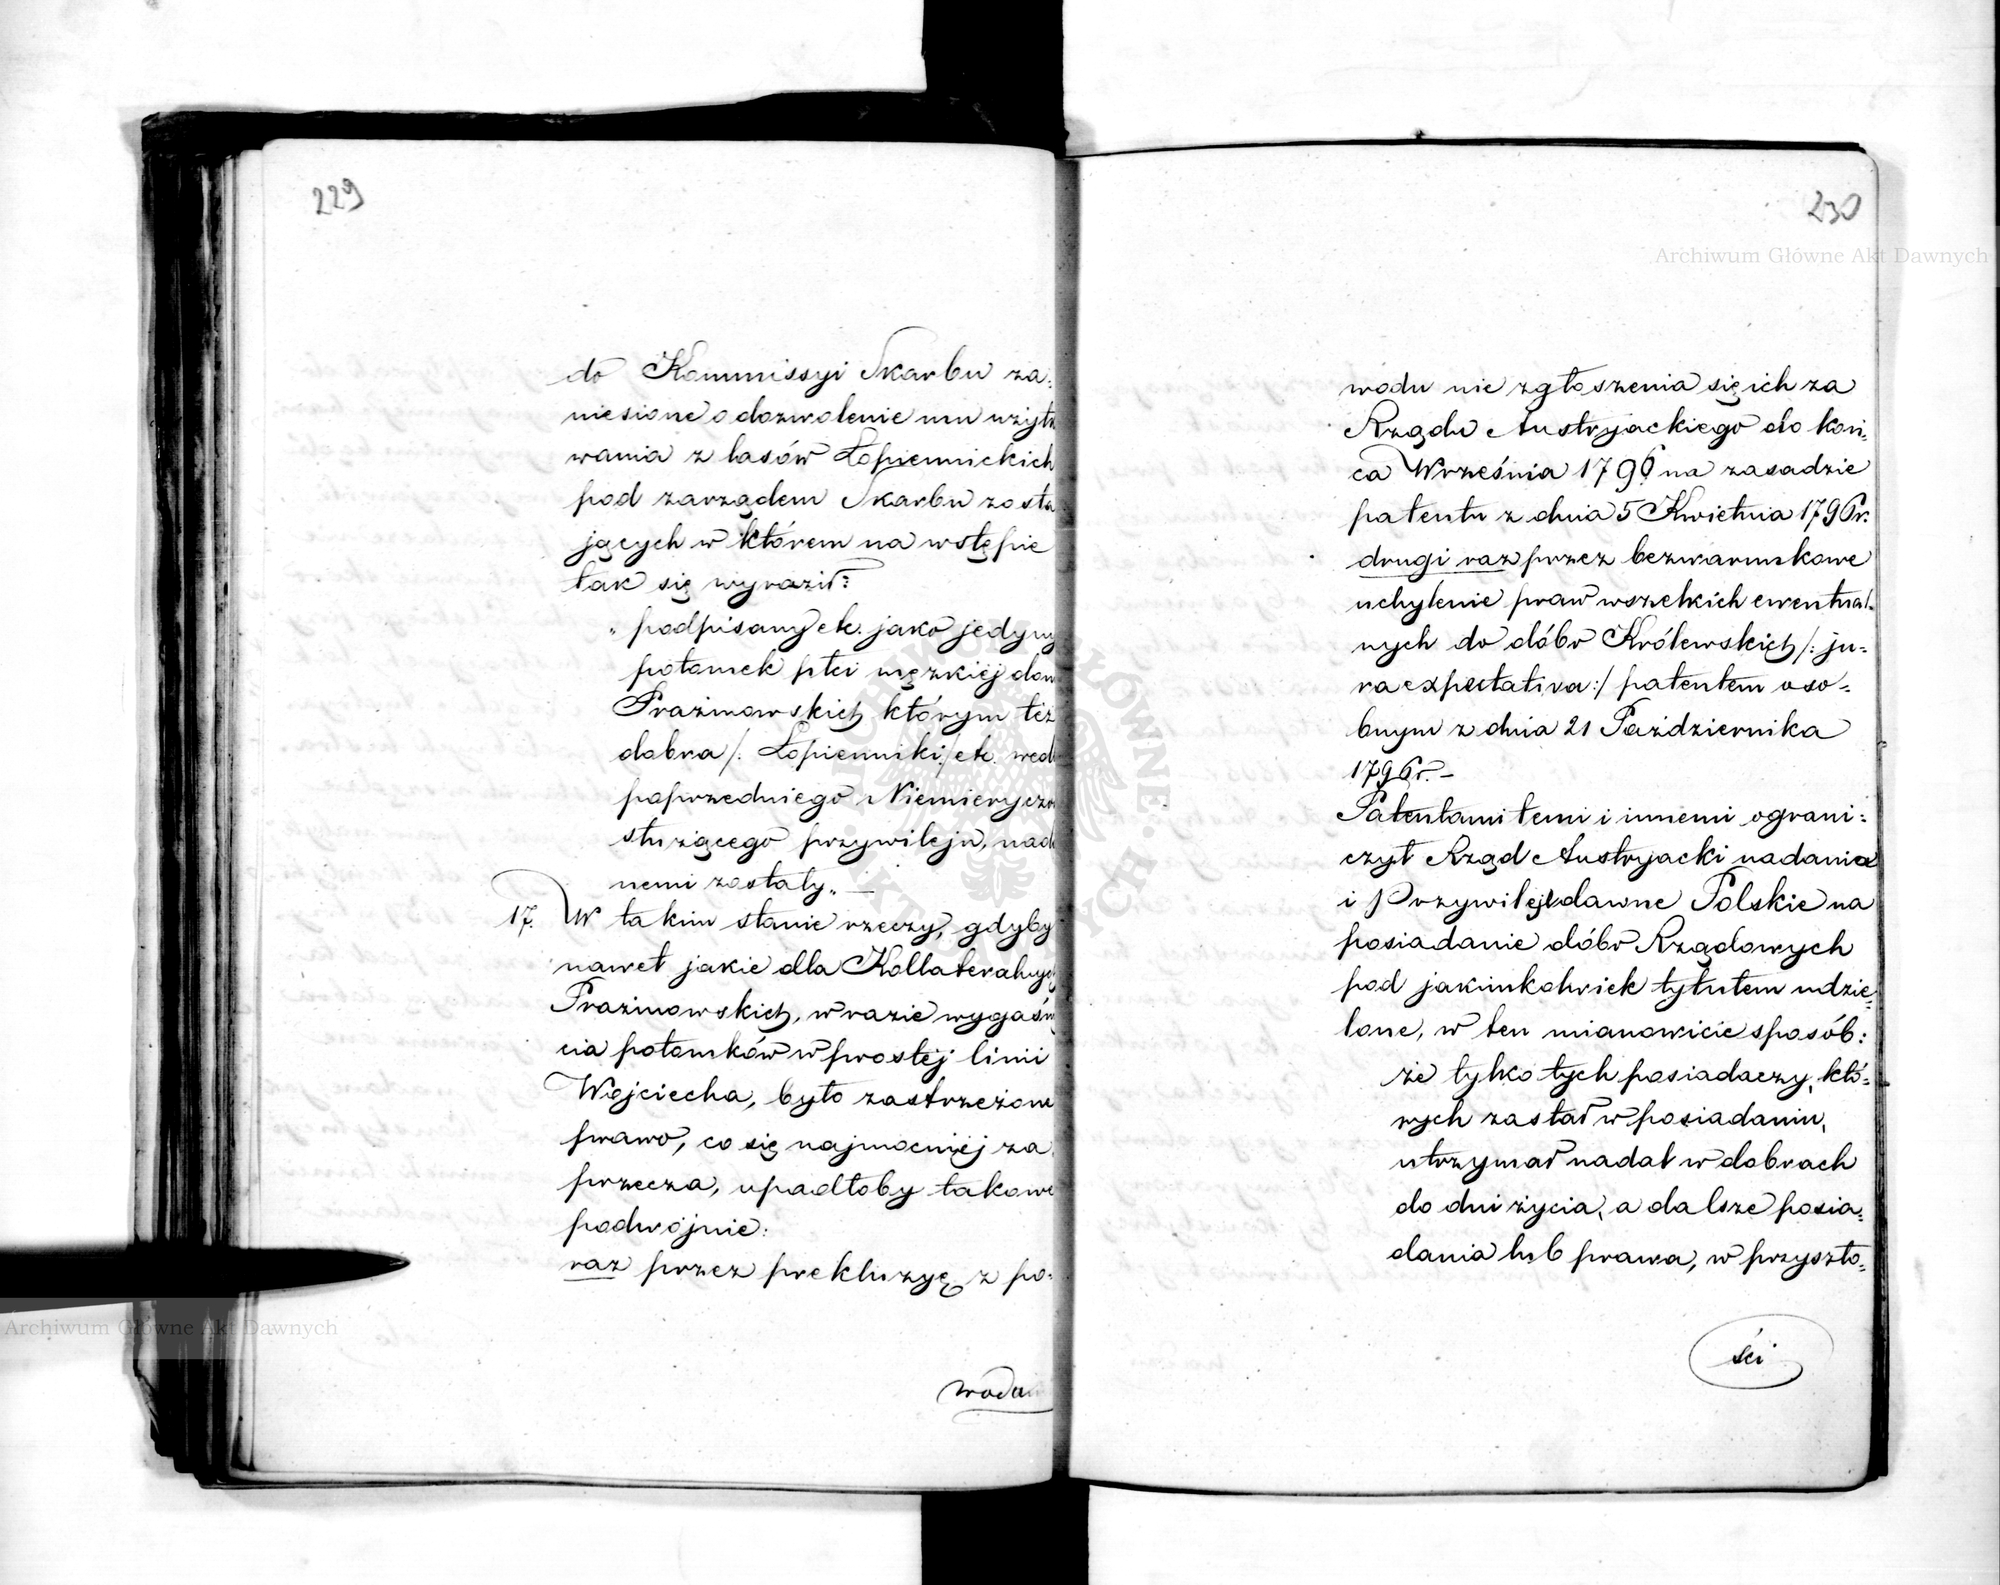 229
do Kommissyi Skarbu za-
niesione o dozwolenie mu użytk
wania z lasów Łopiennickich
pod zarządem Skarbu zosta
jących w którem na wstępie
tak się wyraził:
„podpisany etc. jako jedyny
potomek płci męzkiéj dom
Prażmowskich którym też
dobra /: Łopienniki :/ etc. wedł
poprzedniego Niemieryczow
służącego przywileju, nada
nemi zostały„ —
17. W takim stanie rzeczy, gdyby
nawet jakie dla Kollateralnych
Prażmowskich, w razie wygaśnię
cia potomków w prostéj linii
Wojciecha, było zastrzeżone
prawo, co się najmocniéj za
przecza, upadłoby takowe
podwójnie:
raz przez prekluzyę z po-
wodu
230
wodu nie zgłoszenia się ich za
Rządu Austryjackiego do koń-
ca Września 1796 na zasadzie
patentu z dnia 5 Kwietnia 1796 r.
drugi raz przez bezwarunkowe
uchylenie praw wszelkich ewentual-
nych do dóbr Królewskich /: ju-
ra expectativa :/ patentem oso-
bnym z dnia 21 Października
1796 r. —
Patentami temi i innemi ograni-
czył Rząd Austryjacki nadania
i Przywileje dawne Polskie na
posiadanie dóbr Rządowych
pod jakimkolwiek tytułem udzie-
lone, w ten mianowicie sposób:
że tylko tych posiadaczy, któ-
rych zastał w posiadaniu,
utrzymał nadal w dobrach
do dni życia, a dalsze posia-
dania lub prawa, w przyszło-
ści
Archiwum Główne Akt Dawnych
Archiwum Główne Akt Dawnych